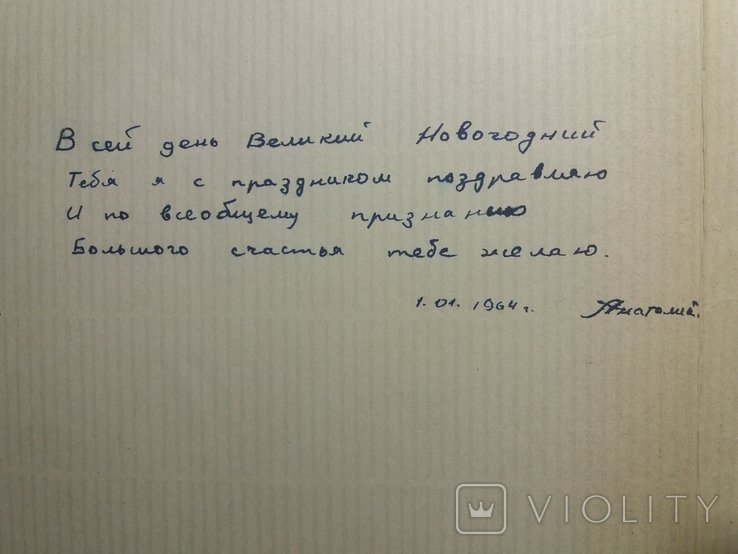 В сей день Великий Новогодний
Тебя я с праздником поздравляю
И по всеобщему признанию
Большого счастья тебе желаю.
1.01.1964 г. Анатолий.
VIOLITY